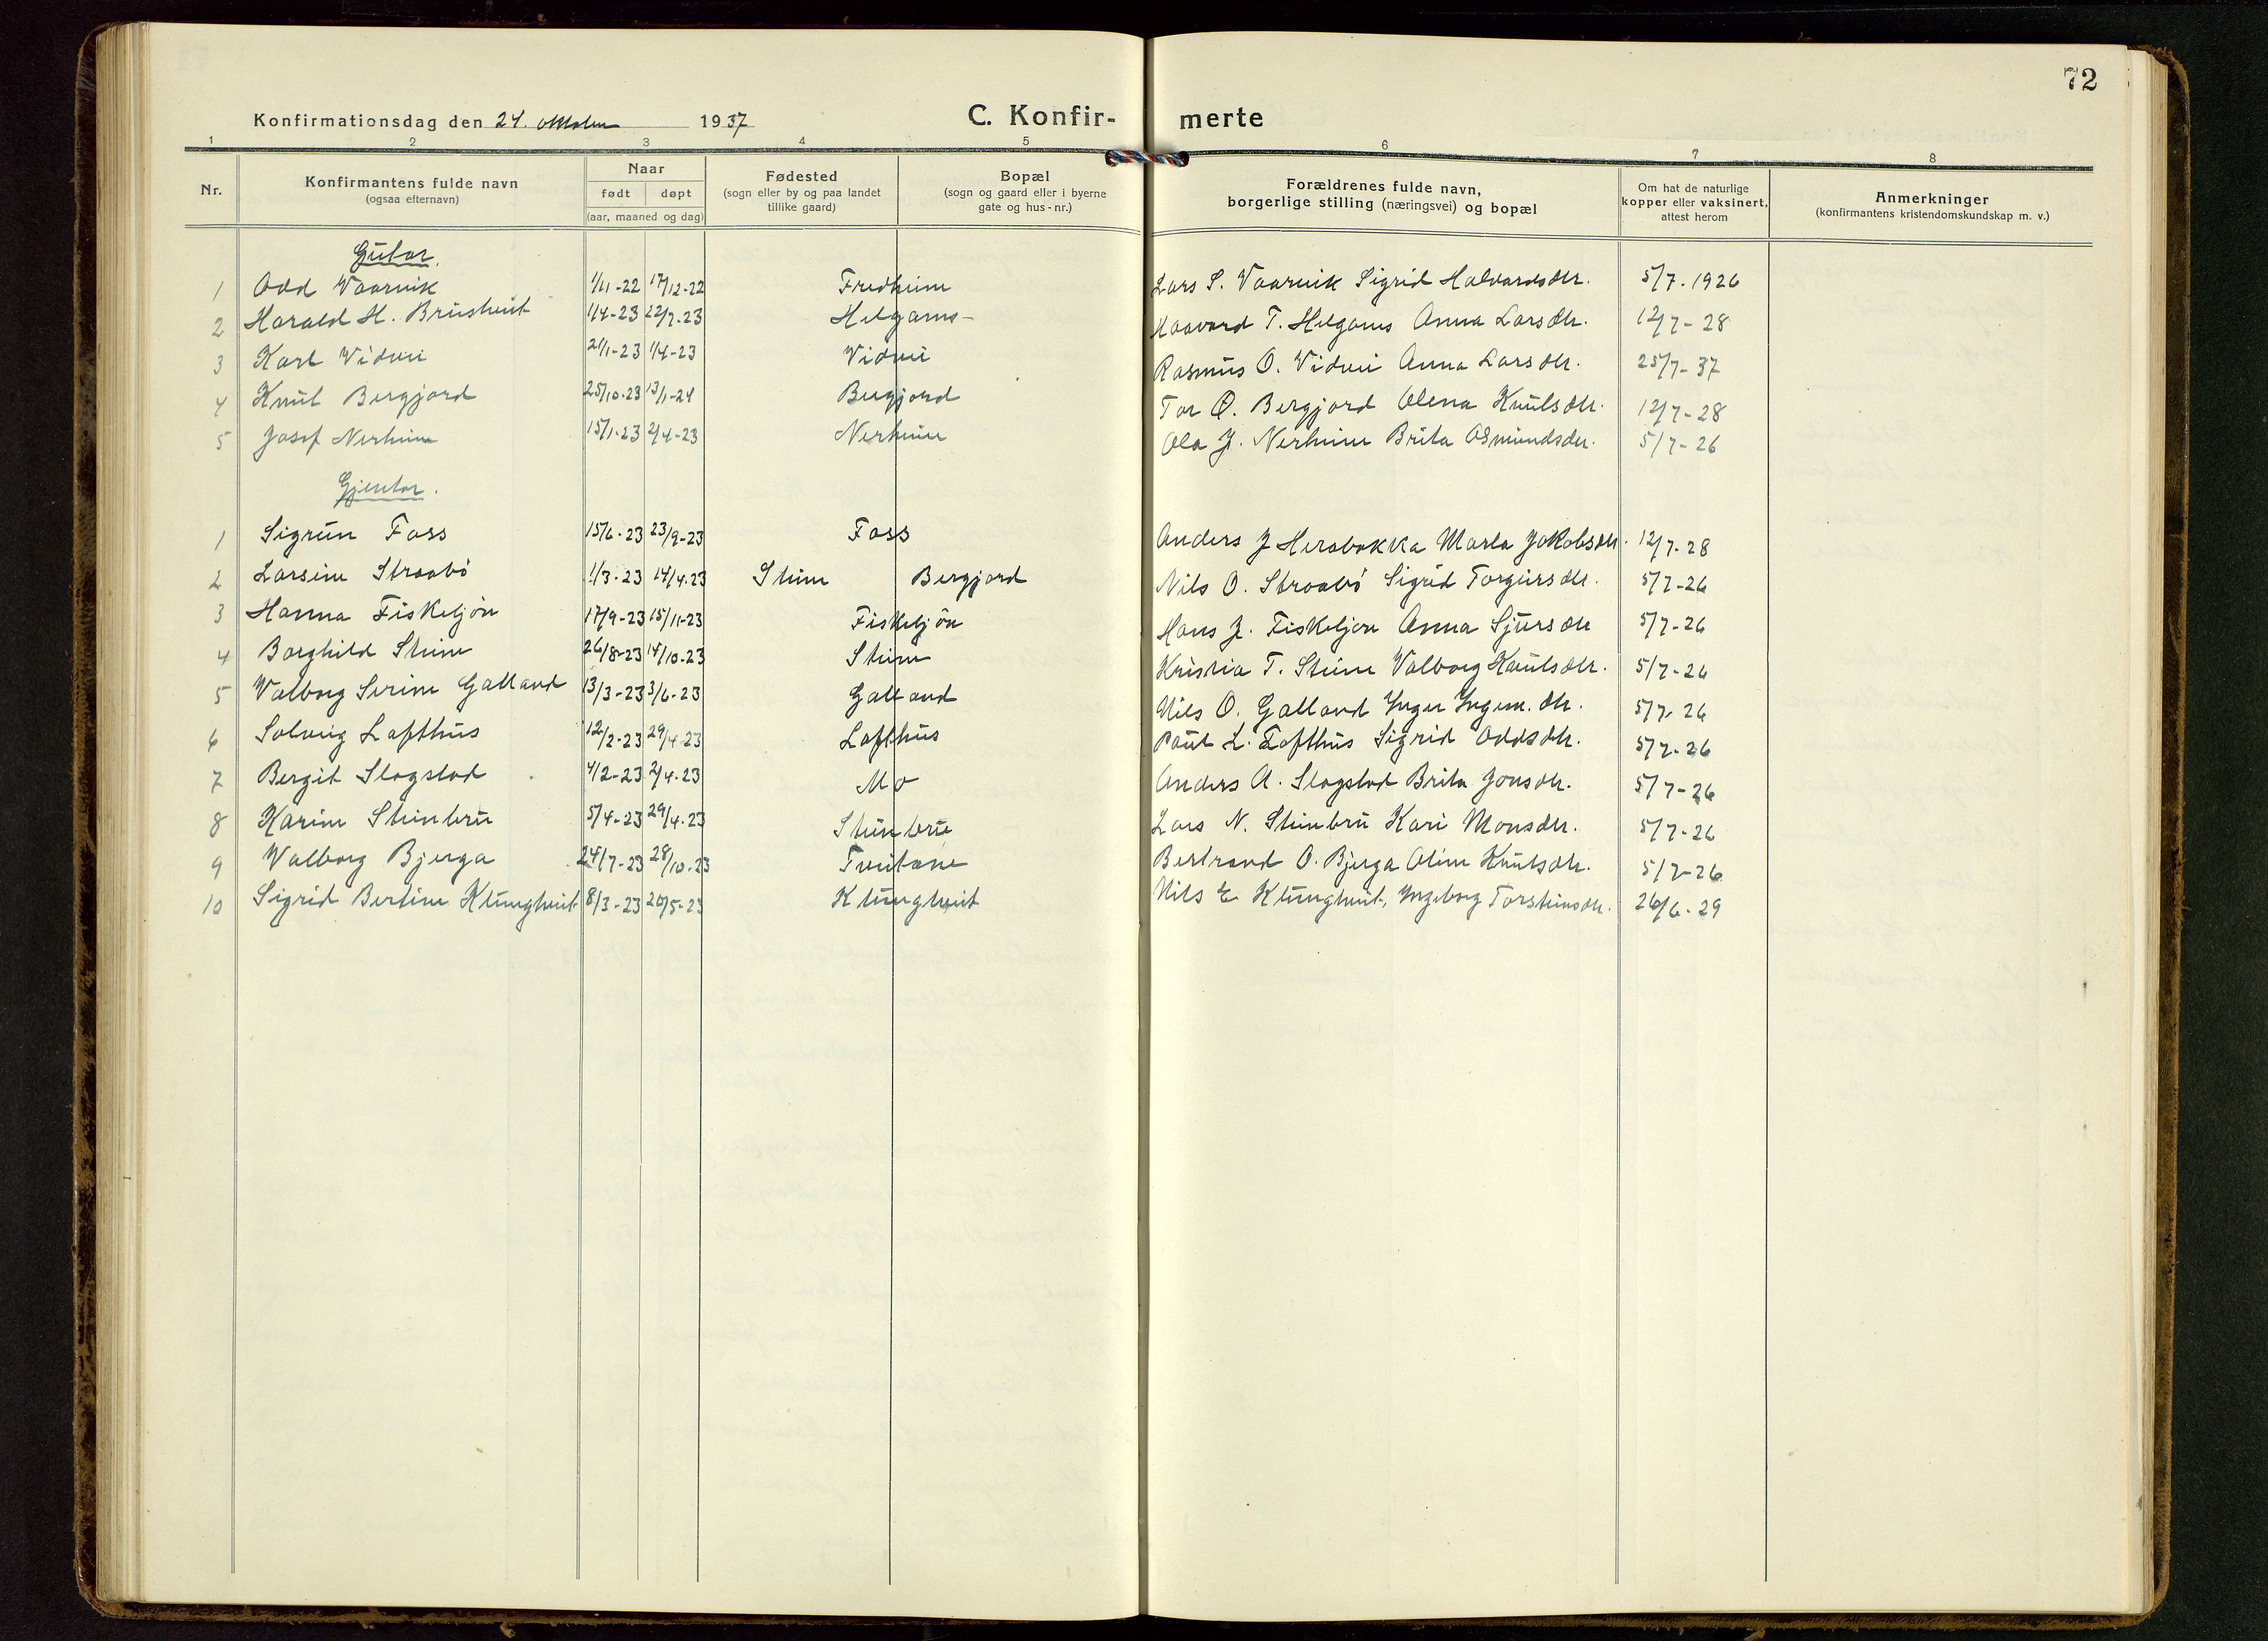 72
Konfirmationsdag den 24. oktober 1937
C. Konfirmerte
1 2 3 4 5 6 7 8
Nr.
Konfirmantens fulde navn
(ogsaa efternavn)
Naar
født døpt
(aar, maaned og dag)
Fødested
(sogn eller by og paa landet
tillike gaard)
Bopæl
(sogn og gaard eller i byerne
gate og hus-nr.)
Forældrenes fulde navn,
borgerlige stilling (næringsvei) og bopæl
Om hat de naturlige
kopper eller vaksinert,
attest herom
Anmerkninger
(konfirmantens kristendomskundskap m. v.)
Gutar.
1 Odd Vaarvik 1/11-22 17/12-22 Fredheim Lars S. Vaarvik Sigrid Halvardsdtr. 5/7-1926
2 Harald H. Brusheit 1/4-23 22/7-23 Helganes- Haavard T. Helganes Anna Larsdtr. 12/7-28
3 Karl Vidvei 21/1-23 1/4-23 Vidvei Rasmus O. Vidvei Anna Larsdtr. 25/7-37
4 Knut Bergjord 25/10-23 13/1-24 Bergjord Tor O. Bergjord Olena Knutsdtr. 12/7-28
5 Josef Nerheim 15/1-23 2/4-23 Nerheim Ola J. Nerheim Brita Osmundsdtr. 5/7-26
Gjentor.
1 Sigrun Foss 15/6-23 23/9-23 Foss Anders J Hersbakka Marta Jakobsdtr. 12/7-28
2 Larsine Straabö 1/3-23 14/4-23 Steine Bergjord Nils O. Straabö Sigrid Torgeirsdtr. 5/7-26
3 Hanna Fisketjön 17/9-23 15/11-23 Fisketjön Hans J. Fisketjön Anna Sjursdtr 5/7-26
4 Borghild Steine 26/8-23 14/10-23 Steine Kristia T. Steine Valborg Knutsdtr. 5/7-26
5 Valborg Serine Galland 13/3-23 3/6-23 Galland Nils O. Galland Inger Ingem.dtr. 5/7-26
6 Solveig Lofthus 12/2-23 29/4-23 Lofthus Paul L. Lofthus Sigrid Oddsdtr. 5/7-26
7 Bergit Slogstad 4/2-23 2/4-23 Mo Anders A. Slogstad Brita Jonsdtr. 5/7-26
8 Karine Steinbru 5/4-23 29/4-23 Steinbru Lars N. Steinbru Kari Monsdtr. 5/7-26
9 Valborg Bjerga 24/7-23 28/10-23 Tveitane Bertrand O. Bjerga Oline Knutsdtr. 5/7-26
10 Sigrid Bertine Klungtveit 8/3-23 20/5-23 Klungtveit Nils E Klungtveit, Ingeborg Torsteinsdtr. 26/6-29